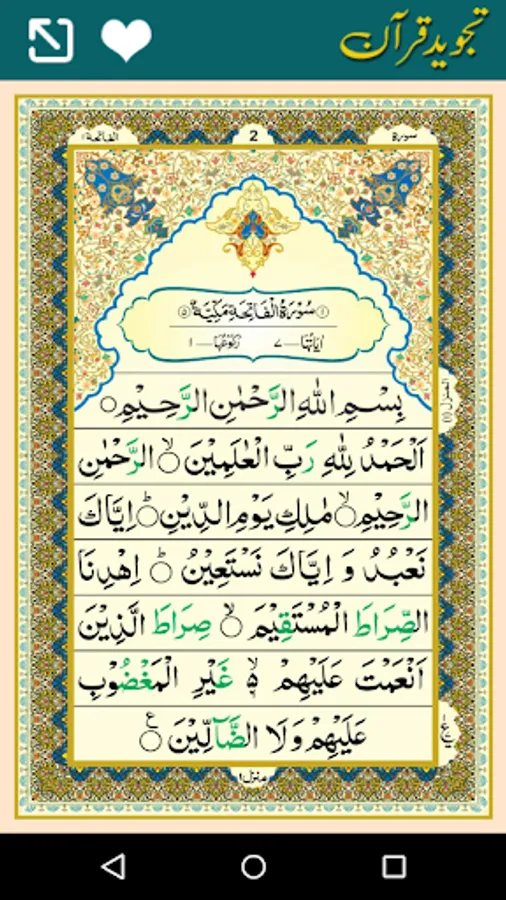 تجوید قرآن
سورة 2 الفاتحة ١
١ سُوْرَةُ الْفَاتِحَةِ مَكِّيَّةٌ ٥
اٰيَاتُهَا ـ ٧ رُكُوْعُهَا ـ ١
بِسْمِ اللهِ الرَّحْمٰنِ الرَّحِيْمِ ○
اَلْحَمْدُ لِلّٰهِ رَبِّ الْعٰلَمِيْنَ ○ۙ الرَّحْمٰنِ
الرَّحِيْمِ ○ۙ مٰلِكِ يَوْمِ الدِّيْنِ ○ؕ اِيَّاكَ
نَعْبُدُ وَ اِيَّاكَ نَسْتَعِيْنُ ○ؕ اِهْدِنَا
الصِّرَاطَ الْمُسْتَقِيْمَ ○ۙ صِرَاطَ الَّذِيْنَ
اَنْعَمْتَ عَلَيْهِمْ ۙ۬ غَيْرِ الْمَغْضُوْبِ
عَلَيْهِمْ وَلَا الضَّآلِّيْنَ ○
المنزل ١
منزل ١